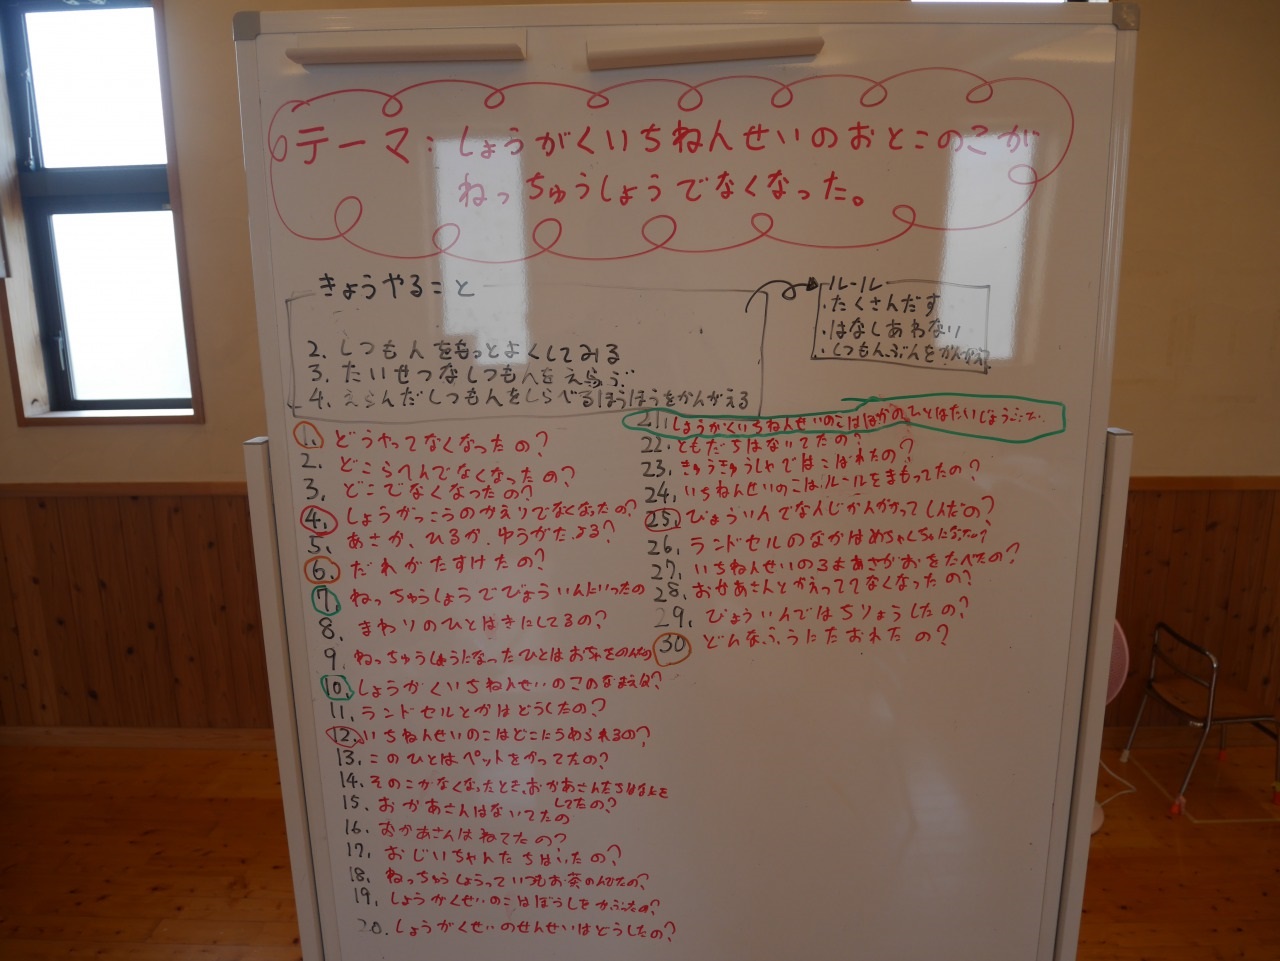 テーマ：しょうがくいちねんせいのおとこのこが
ねっちゅうしょうでなくなった。
きょうやること
2. しつもんをもっとよくしてみる
3. たいせつなしつもんをえらぶ
4. えらんだしつもんをしらべるほうほうをかんがえる
ルール
・たくさんだす
・はなしあわない
・しつもんぶんをかんがえ
1. どうやってなくなったの?
2. どこらへんでなくなったの?
3. どこでなくなったの?
4. しょうがっこうのかえりでなくなったの?
5. あさか、ひるか、ゆうがたよる?
6. だれがたすけたの?
7. ねっちゅうしょうでびょういんにいったの
8. まわりのひとはきにしてるの?
9. ねっちゅうしょうになったひとはおちゃをのんだの
10. しょうがくいちねんせいのこのなまえは?
11. ランドセルとかはどうしたの?
12. いちねんせいのこはどこにうめられるの?
13. このひとはペットをかってたの?
14. そのこがなくなったとき、おかあさんたちはなにを
してたの?
15. おかあさんはないてたの
16. おかあさんはねてたの?
17. おじいちゃんたちはいたの?
18. ねっちゅうしょうっていつもお茶のんでたの?
19. しょうがくせいのこはぼうしをかぶったの?
20. しょうがくせいのせんせいはどうしたの?
21. しょうがくいちねんせいのこはほかのひとはたいじょうぶ
22. ともだちはないてたの?
23. きゅうきゅうしゃではこばれたの?
24. いちねんせいのこはルールをまもってたの?
25. びょういんでなんじかんかかってしんだの?
26. ランドセルのなかはめちゃくちゃになったの?
27. いちねんせいの3はあさがおをたべたの?
28. おかあさんとかえっててなくなったの?
29. びょういんではちりょうしたの?
30 どんなふうにたおれたの?